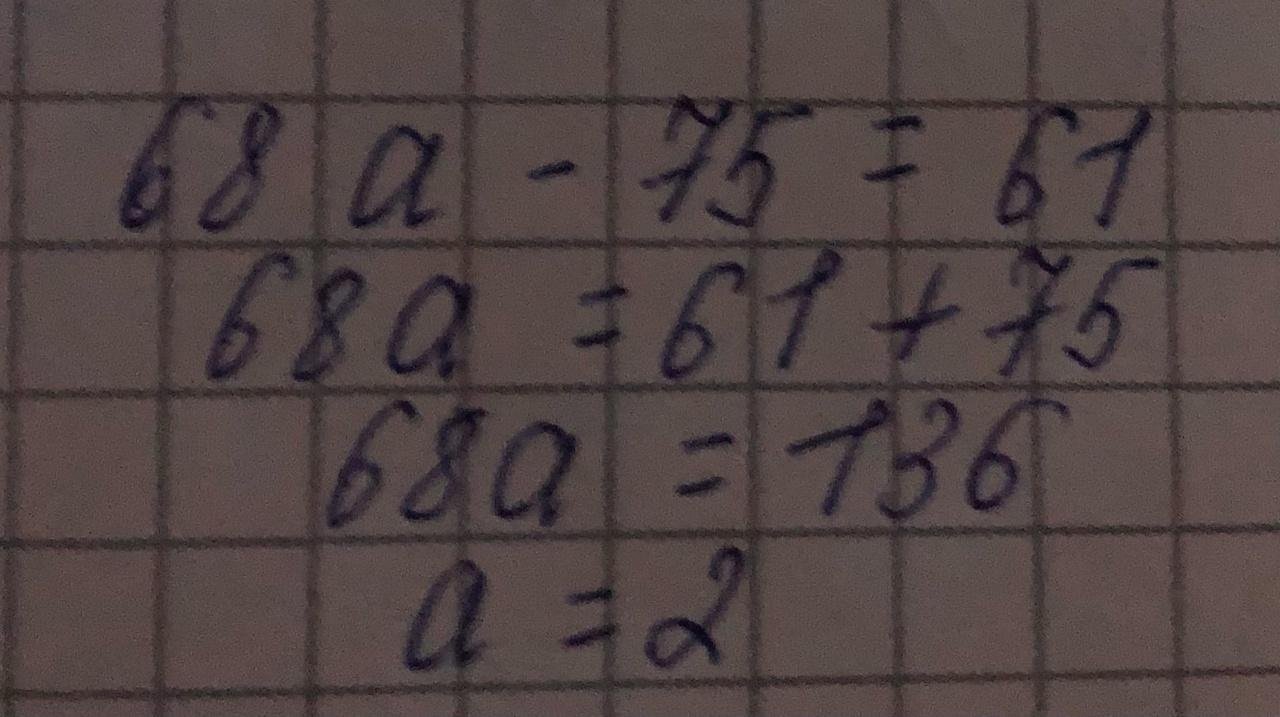 68 a - 75 = 61
68a = 61 + 75
68a = 136
a = 2